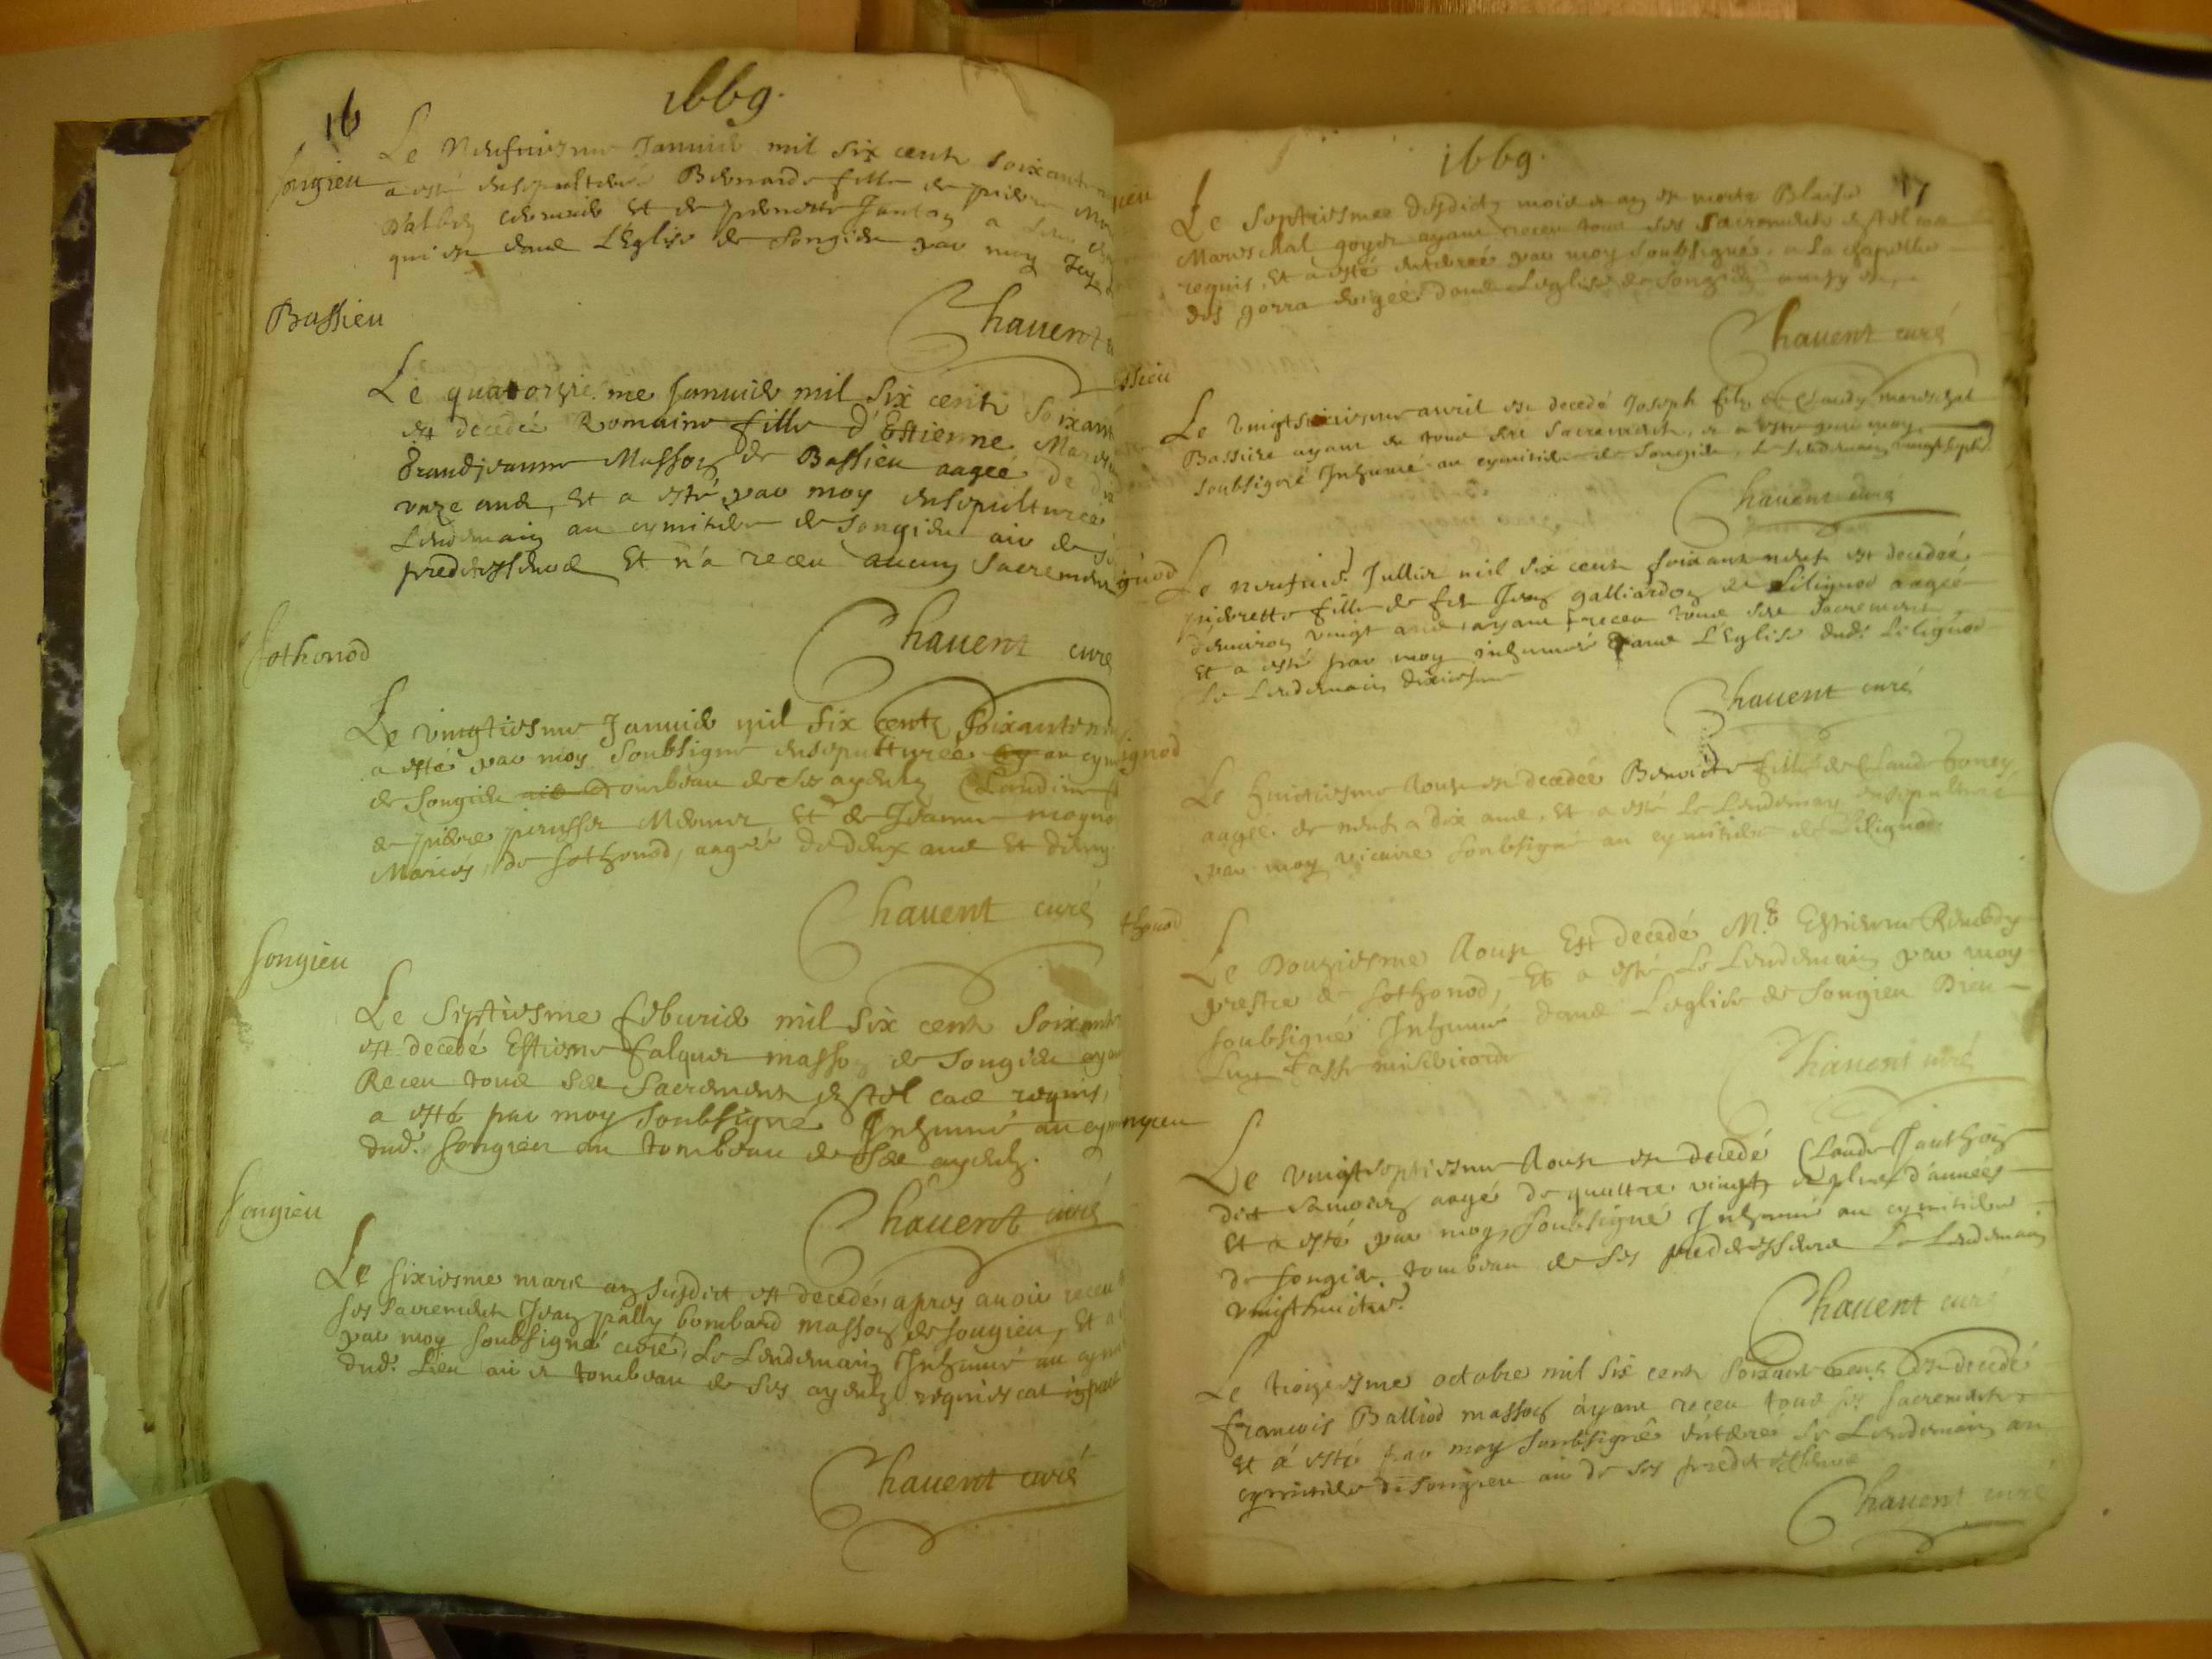 16
1669.
Songieu
Le Neufuiesme Januier mil six cent soixante
a esté ensepulturée Bernarde fille de pierre
qui est dans L'Église de Songieu par moy
Chauent
Bassieu
Le quatorzie.me Januier mil six cents soixan
est decedée Romaine fille d'Estienne
Masson de Bassieu aagée de
unze ans, Et a esté par moy ensepulturée
Lendemain au cymitiere de Songieu
predecesseurs Et n'a receu aucun Sacremen
Chauent curé
Sothonod
Le vingtiesme Januier mil six cents soixante
a esté par moy soubsigné ensepulturée au cym
de Songieu tombeau de ses ayeulz Claudine
de pierre et de Jeanne
Mariés, de Sothonod, aagée de deux ans Et demy
Chauent curé
Songieu
Le septiesme feburier mil six cent soixante
est decedé Estienne falquet masson de Songieu aya
Receu tous ses Sacremens en tel cas requis,
a esté par moy soubsigné Inhumé au cym
dud. Songieu au tombeau de ses ayeulz.
Chauent curé
Songieu
Le sixiesme mars an susdict est decedé, apres auoir receu
ses sacremens Jean pally bombard masson de Songieu, Et a
par moy soubsigné curé, Le Lendemain Inhumé au cym
dud. Lieu au tombeau de ses ayeulz requiescat in pace
Chauent curé
1669.
17
Le septiesme desdicts mois et an est morte Blaise
Mareschal ayant receu tous ses Sacremens en tel cas
requis, Et a esté enterrée par moy soubsigné, a La chapelle
des gorra erigée dans L'eglise de Songieu
Chauent curé
ssieu
Le auril est decedé Joseph filz de Claude mareschal
Bassieu ayant eu tous ses Sacremens, et a esté par moy
soubsigné Inhumé au cymitiere de Songieu, le Lendemain
Chauent curé
gnod
Le neufuie. Jullier mil six cent soixante neuf est decedée
pierrette fille de feu Jean galliardon de Lilignod aagée
d'enuiron vingt ans, ayant receu tous ses Sacremens,
Et a esté par moy inhumée dans L'Eglise dud. Lilignod
Le Lendemain dixiesme
Chauent curé
ignod
Le huictiesme Aoust est decedée Benoicte fille de Claude
aagée de neuf a dix ans, Et a esté Le Lendemain ensepulturée
par moy vicaire soubsigné au cymitiere de Lilignod
thonod
Le Douziesme Aoust Est decedé M.e Estienne
prestre de Sothonod, Et a esté Le Lendemain par moy
soubsigné Inhumé dans L'eglise de Songieu Dieu
Luy fasse misericorde
Chauent curé
ngieu
Le vingtseptiesme Aoust est decedé Claude Janthon
dict aagé de quattre vingts et plus d'années
Et a esté par moy, soubsigné Inhumé au cymitiere
de Songieu, tombeau de ses predecesseurs Le Lendemain
vingthuictie.
Chauent curé
Le troiziesme octobre mil six cent soixante neuf est decedé
francois Balliod masson ayant receu tous ses sacremens
Et a esté par moy soubsigné enterré Le Lendemain au
cymitiere de Songieu de ses predecesseurs
Chauent curé